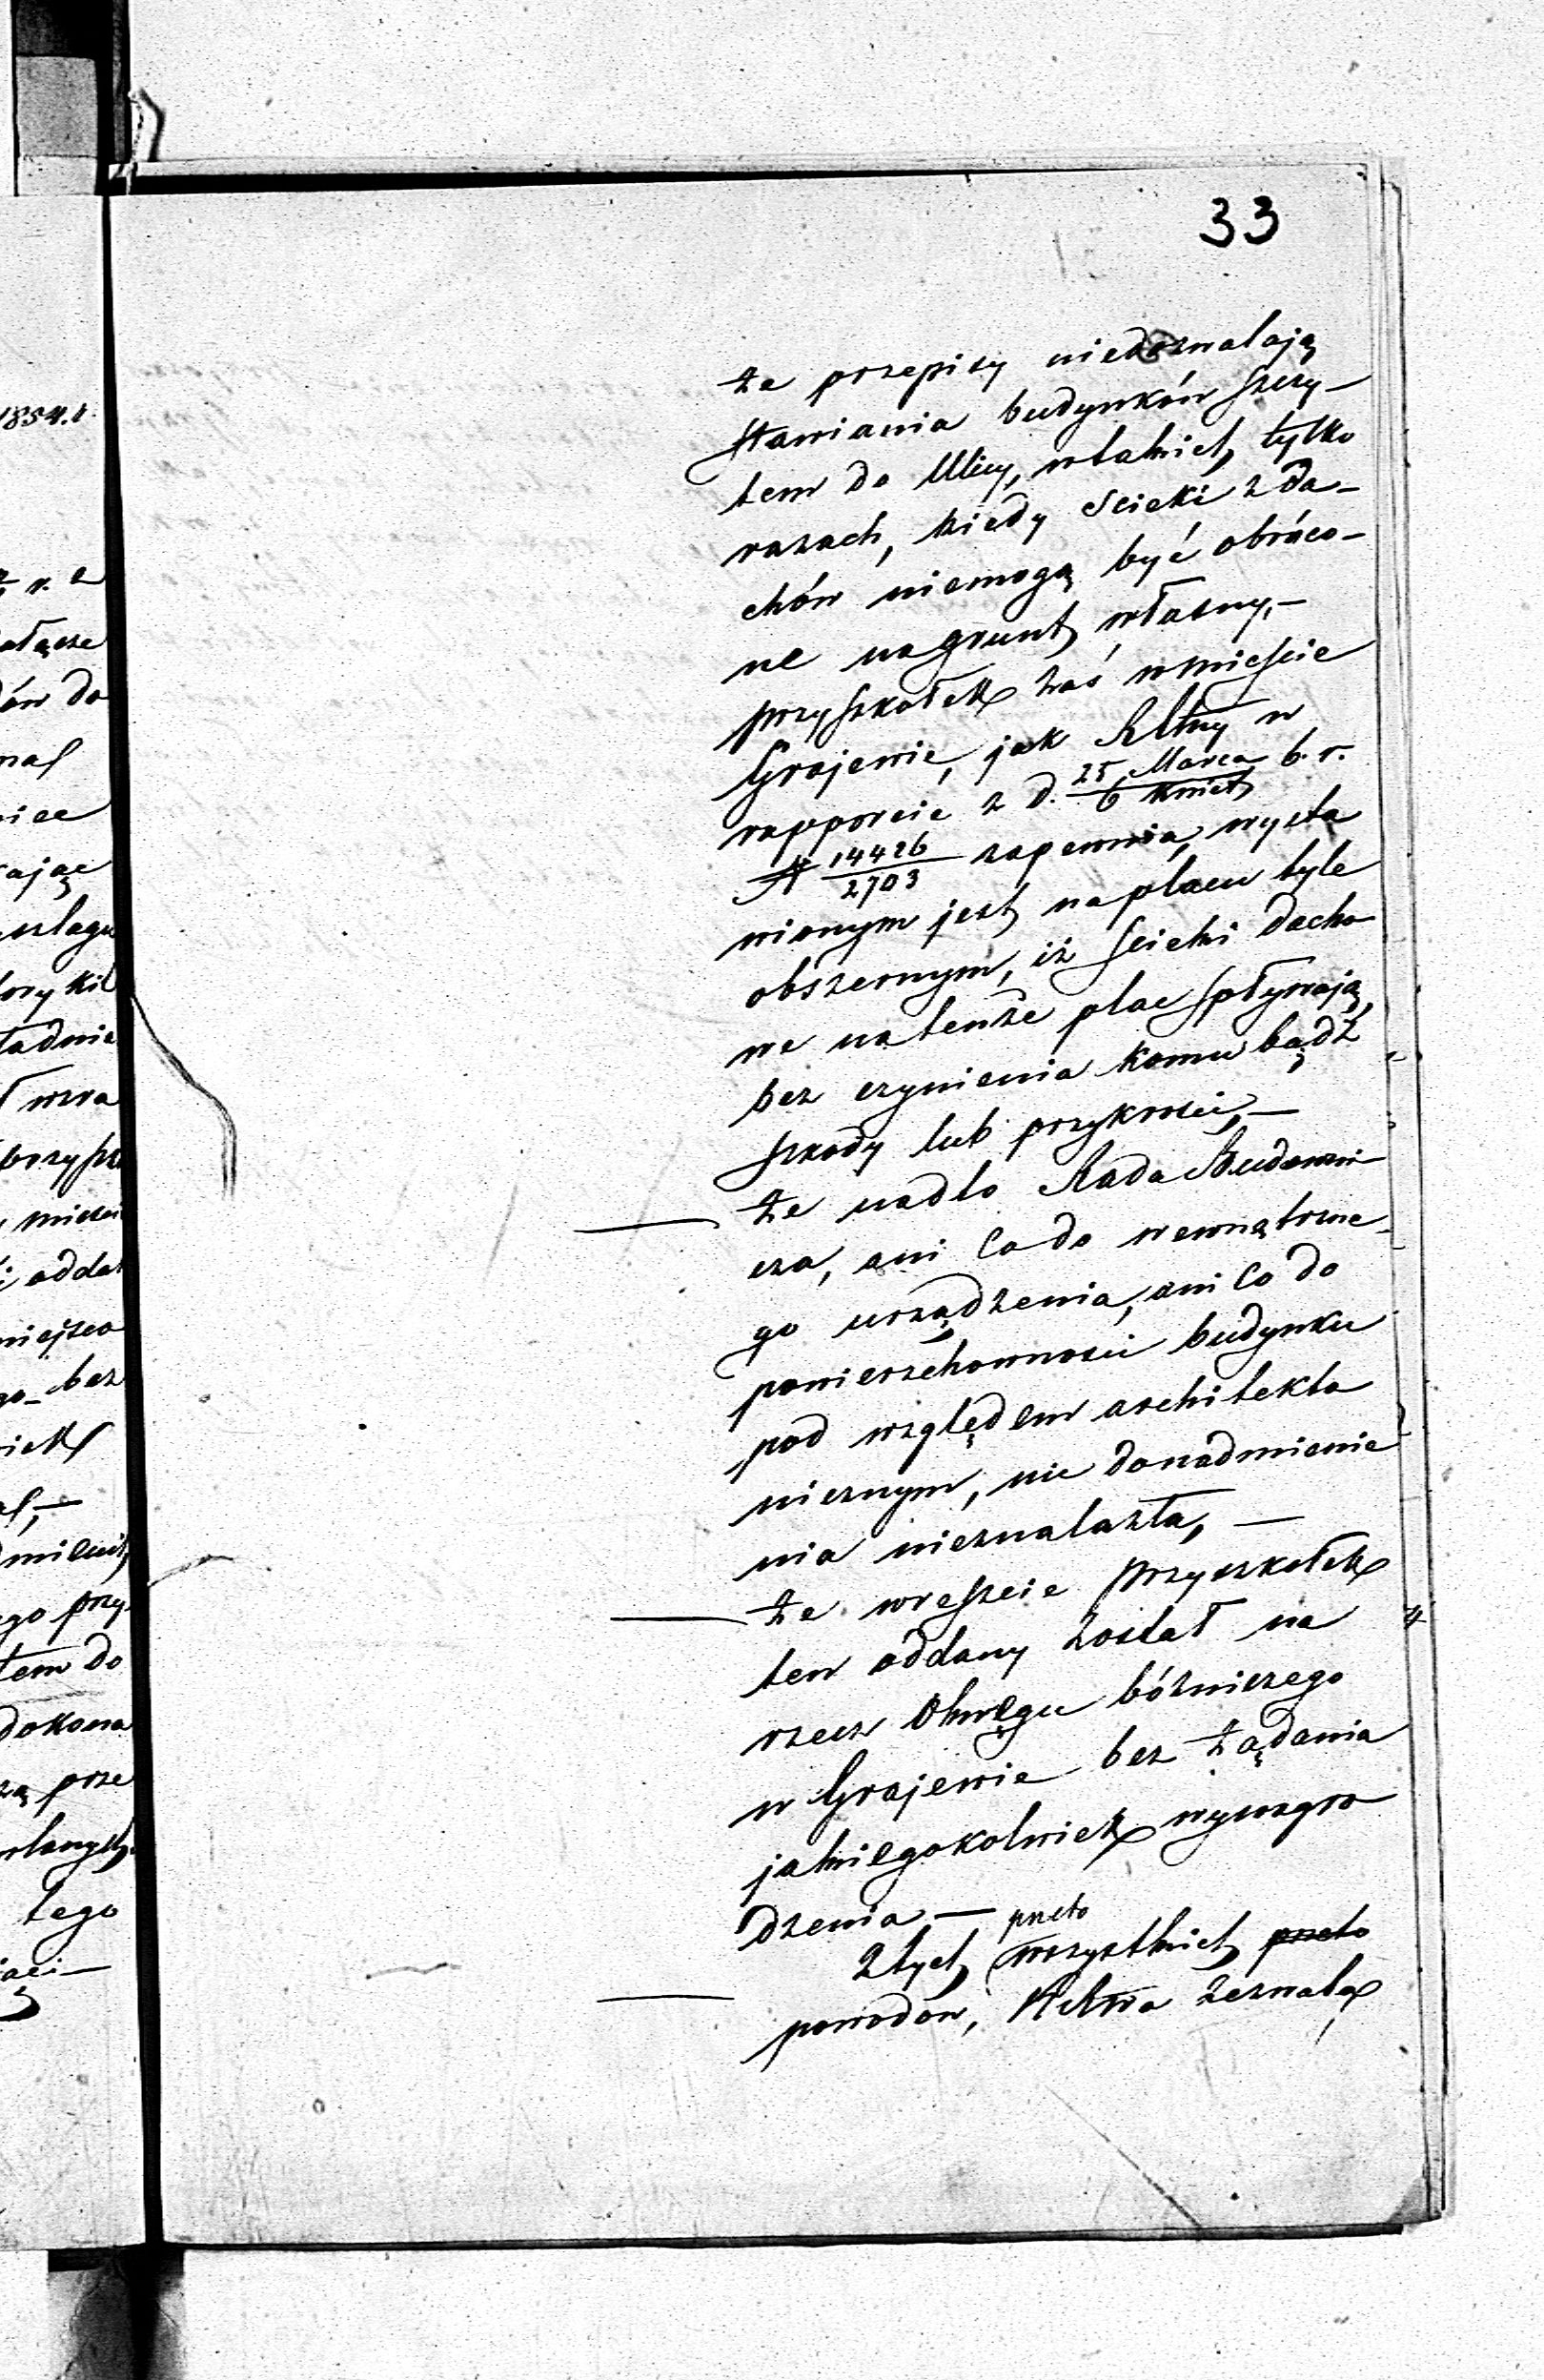 33
że przepisy niedozwalają
stawiania budynków szczy-
tem do Ulicy, w takich tylko
razach, kiedy scieki z da-
chów niemogą być obróco-
ne na grunt własny,-
przyszkołek zaś w mieście
Grajewie, jak w
rapporcie z d. 25 Marca / 6 Kwiet b. r.
N 14426 / 2703 zapewnia, wysta
wionym jest na placu tyle
obszernym, iż scieki dacho
we na tenże plac spływają,
bez czynienia komu bądź
szkody lub przykrości,-
że nadto Rada Budowni
cza, ani co do wewnątrzne-
go urządzenia, ani co do
powierzchowności budynku
pod względem architekto
nicznym, nic do nadmienie
nia nieznalazła,-
że wreszcie przyszkołek
ten oddany został na
rzecz Okręgu bóżniczego
w Grajewie bez żądania
jakiegokolwiek wynagro
dzenia,-
Z tych przeto wszystkich przeto
powodów,
1854.r.
ów do
ając
ładnie
i oddał
bez
ego przy
tem do
dokona
prze
tego